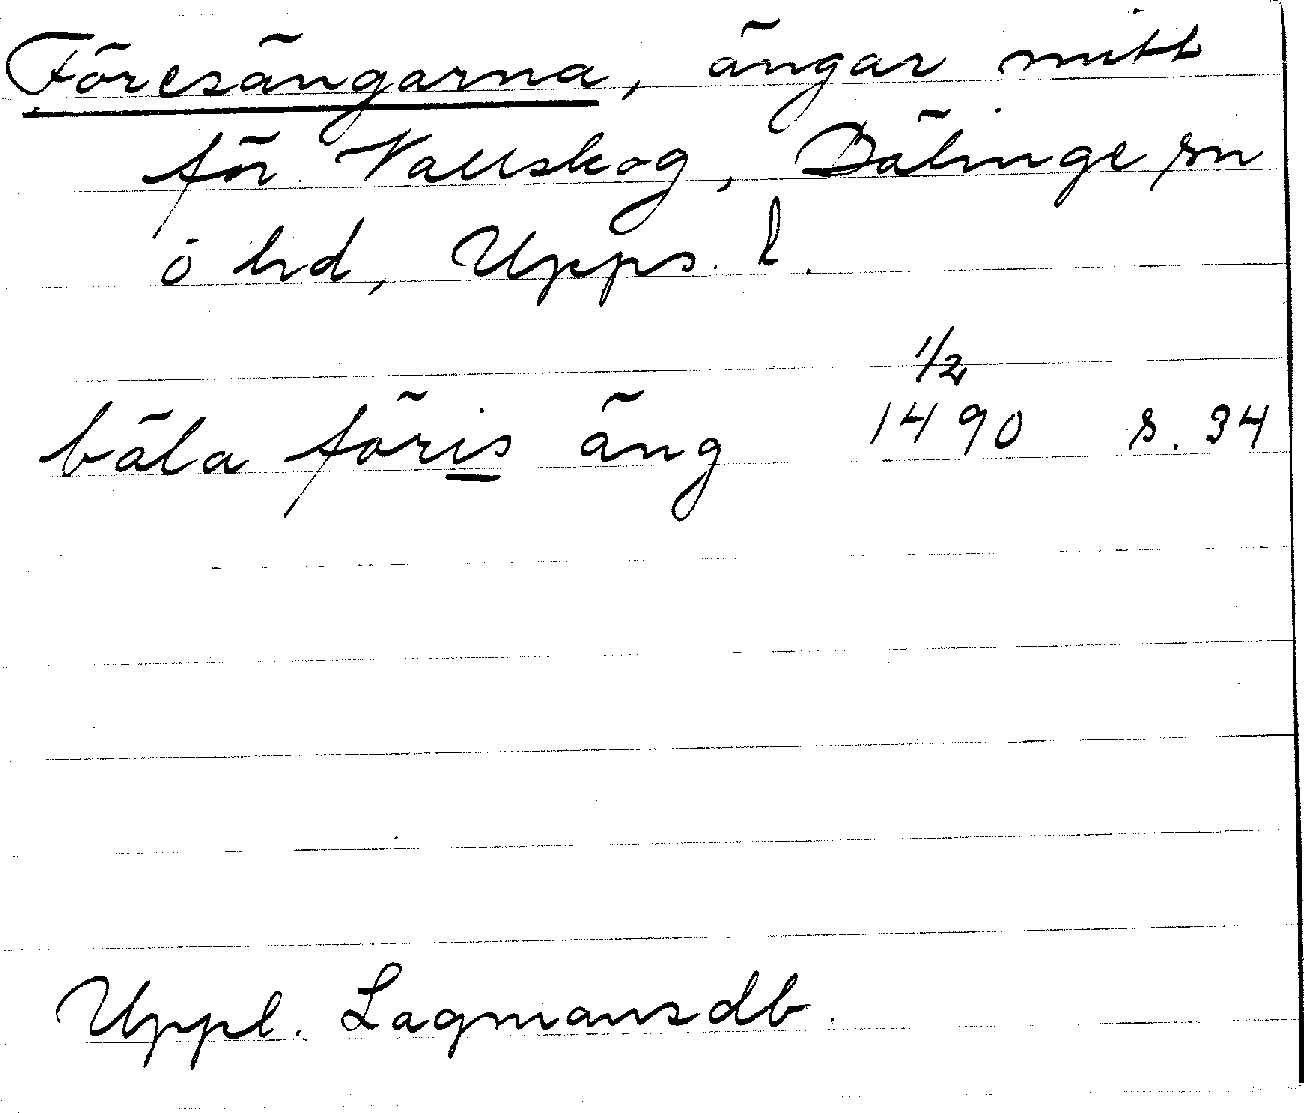 Föresängarna, ängar mitt
för Vallskog, Bälinge sn
o hd, Upps. l.
1/2
bäla föris äng 1490 s. 34
Uppl. Lagmansdb.